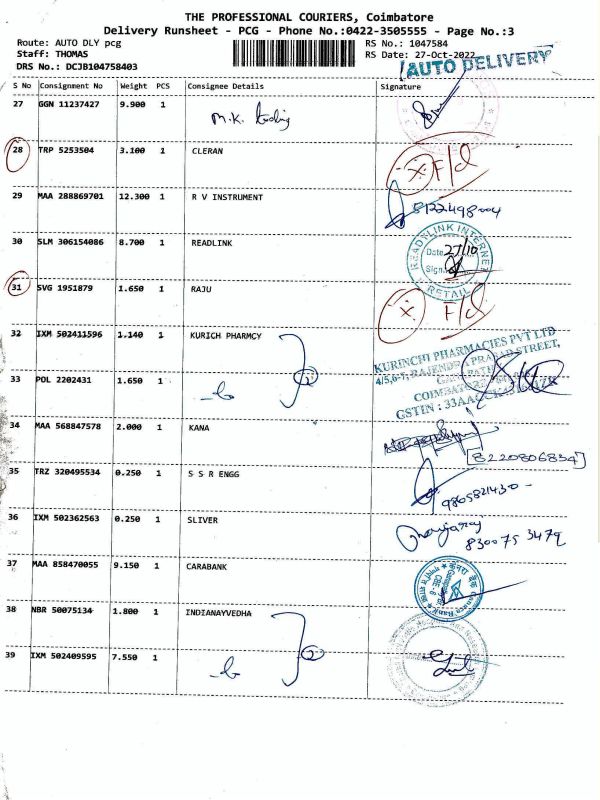 THE PROFESSIONAL COURIERS, Coimbatore
Delivery Runsheet - PCG - Phone No.:0422-3505555 - Page No.:3
Route: AUTO DLY pcg RS No.: 1047584
Staff: THOMAS RS Date: 27-Oct-2022
DRS No.: DCJB104758403 AUTO DELIVERY
S No Consignment No Weight PCS Consignee Details Signature
27 GGN 11237427 9.900 1 M.K. trading
28 TRP 5253504 3.100 1 CLERAN X F/d
29 MAA 288869701 12.300 1 R V INSTRUMENT 8122498004
30 SLM 306154086 8.700 1 READLINK READYLINK INTERNET RETAIL Date 27/10 Sign
31 SVG 1951879 1.650 1 RAJU X F/d
32 IXM 502411596 1.140 1 KURICH PHARMCY
KURINCHI PHARMACIES PVT LTD
4/5,6-7, RAJENDRA PRASAD STREET,
33 POL 2202431 1.650 1 2
COIMBATORE
GSTIN : 33AA
34 MAA 568847578 2.000 1 KANA
[8220806834]
35 TRZ 320495534 0.250 1 S S R ENGG 9865821430
36 IXM 502362563 0.250 1 SLIVER
830075 3479
37 MAA 858470055 9.150 1 CARABANK केनरा बैंक Canara Bank
38 NBR 50075134 1.800 1 INDIANAYVEDHA
39 IXM 502409595 7.550 1 2